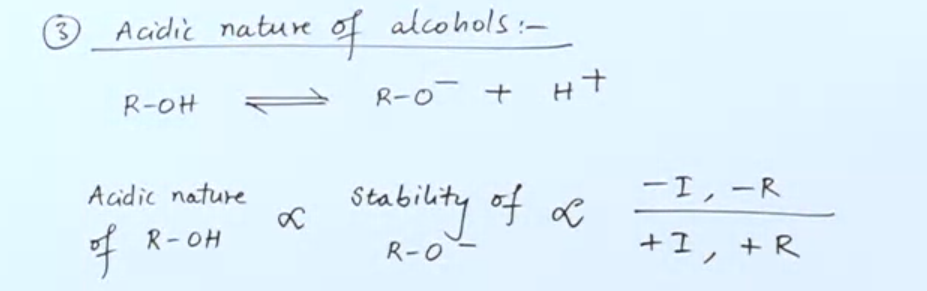 ③ Acidic nature of alcohols :-
R-OH ⇌ R-O⁻ + H⁺
Acidic nature of R-OH ∝ Stability of R-O⁻ ∝ -I, -R / +I, +R